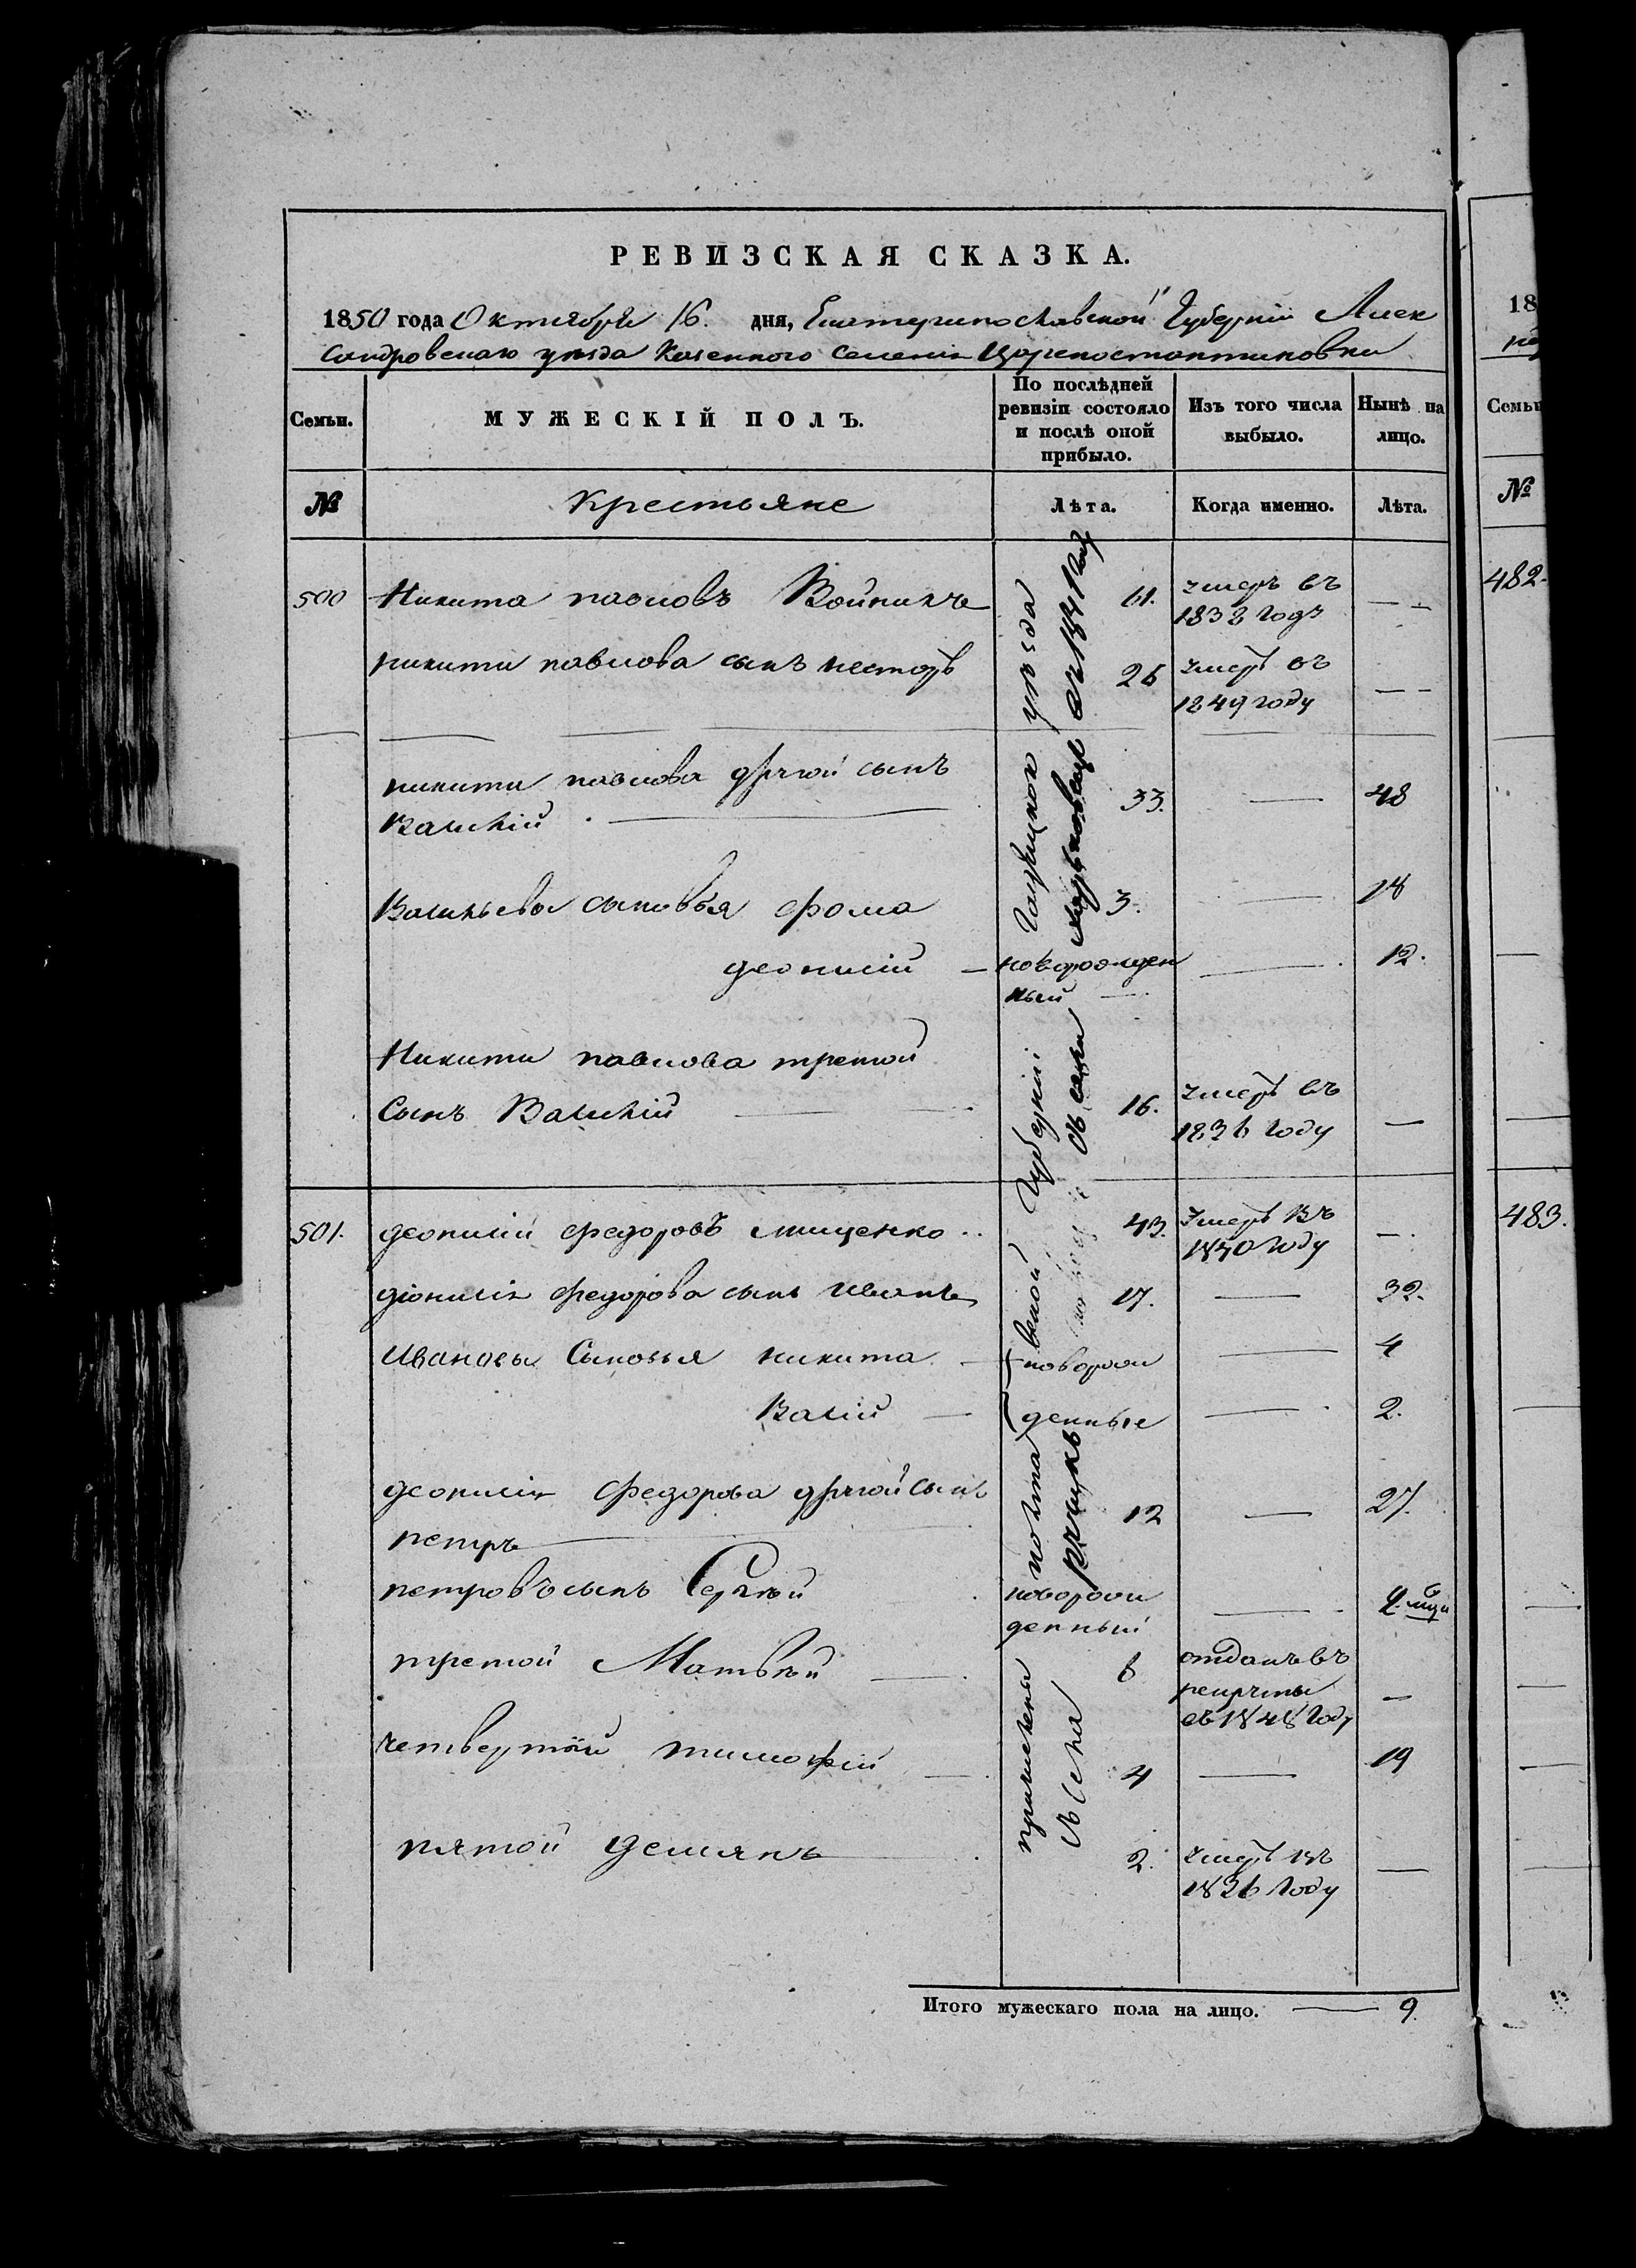 РЕВИЗСКАЯ СКАЗКА.
1850 года Октября 16. дня, Екатеринославской Губерніи Алек
сандровскаго уѣзда Казенного Селенія Цареконстантиновки
Семьи.
МУЖЕСКІЙ ПОЛЪ.
По послѣдней
ревизіи состояло
и послѣ оной
прибыло.
Изъ того числа
выбыло.
Нынѣ на
лицо.
№
Крестьяне
Лѣта.
Когда именно.
Лѣта.
500 Никита павловъ Войникъ 61. умеръ въ — —
1838 годъ
никиты павлова сынъ несторъ 26 умеръ въ — —
1849 году
никиты павлова другой сынъ
Василій 33. — 48
Васильевы сыновья фома 3. — 18
деонисій — новорожден — 12.
ный —
Никиты павлова третой
Сынъ Василій — 16. умеръ въ —
1836 году
501. деонисій федоровъ мищенко 43. Умеръ въ —
1840 году
діонисія федорова сынъ Иванъ 17. — 32.
Ивановы Сыновья никита — новорож — 4
Васій — денные — 2.
деонисія федорова другой сынъ
петръ — 12 — 27.
петровъ сынъ Сергѣй новорож —
денный
третой Матвѣй — 6 отданъ въ —
рекруты
въ 1848 году
четвертой тимофѣй — 4 — 19
пятой демянъ — 2. умеръ въ —
1836 году
Губерніи уѣзда
причислены
Итого мужескаго пола на лицо. — 9.
18
Семьи
№
482.
483.